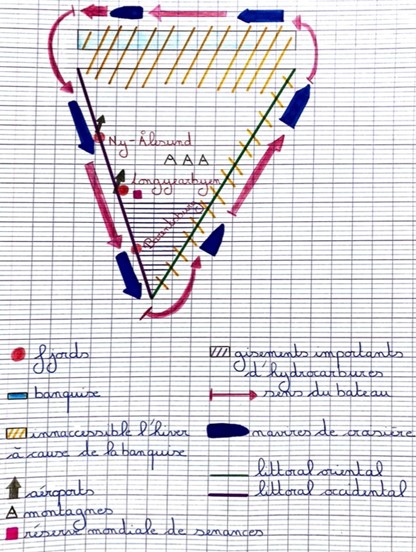 Ny-Ålesund
Longyearbyen
Barentsburg
fjords
banquise
innaccessible l'hiver
à cause de la banquise
aéroports
montagnes
réserve mondiale de semances
gisements importants
d'hydrocarbures
sens du bateau
navires de crasière
littoral oriental
littoral occidental